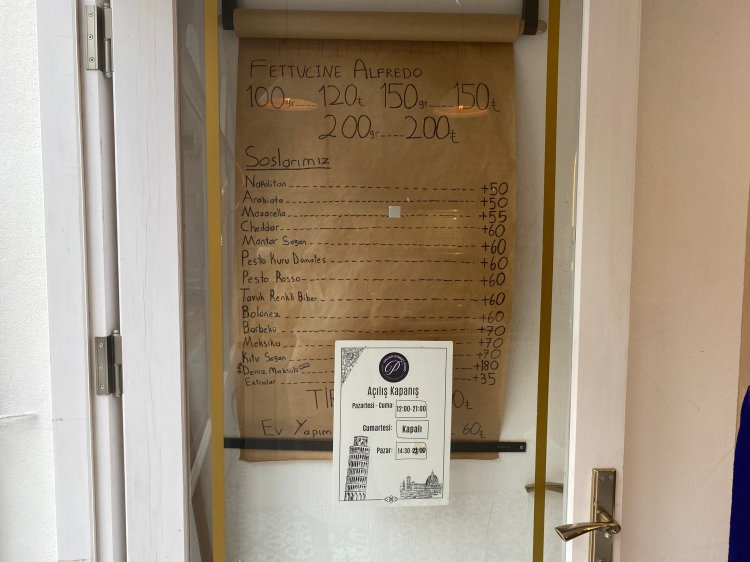 FETTUCINE ALFREDO
100gr.....120₺ 150gr.....150₺
200gr.....200₺
Soslarımız
Napoliten +50
Arabiata +50
Mozarella +55
Cheddar +60
Mantar Soğan +60
Pesto Kuru Domates +60
Pesto Rosso +60
Tavuk Renkli Biber +60
Bolonez +60
Barbekü +70
Meksika +70
Kıtır Soğan +70
Deniz Mahsülü +180
Extralar +35
EV YAPIM 60₺
P
Açılış Kapanış
Pazartesi - Cuma: 12:00-21:00
Cumartesi: Kapalı
Pazar: 14:30-21:00